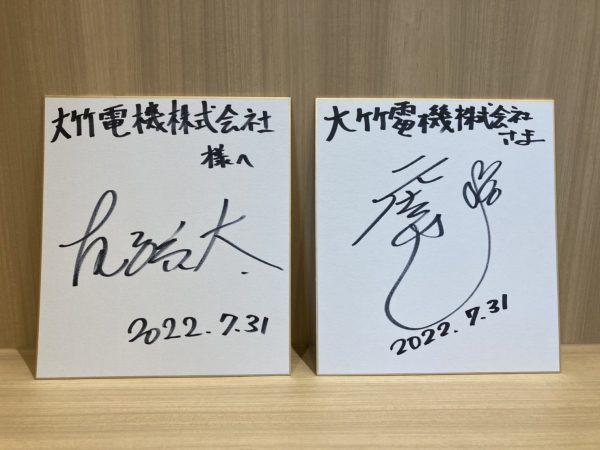 大竹電機株式会社
様へ
2022.7.31
大竹電機株式会社
さま
2022.7.31